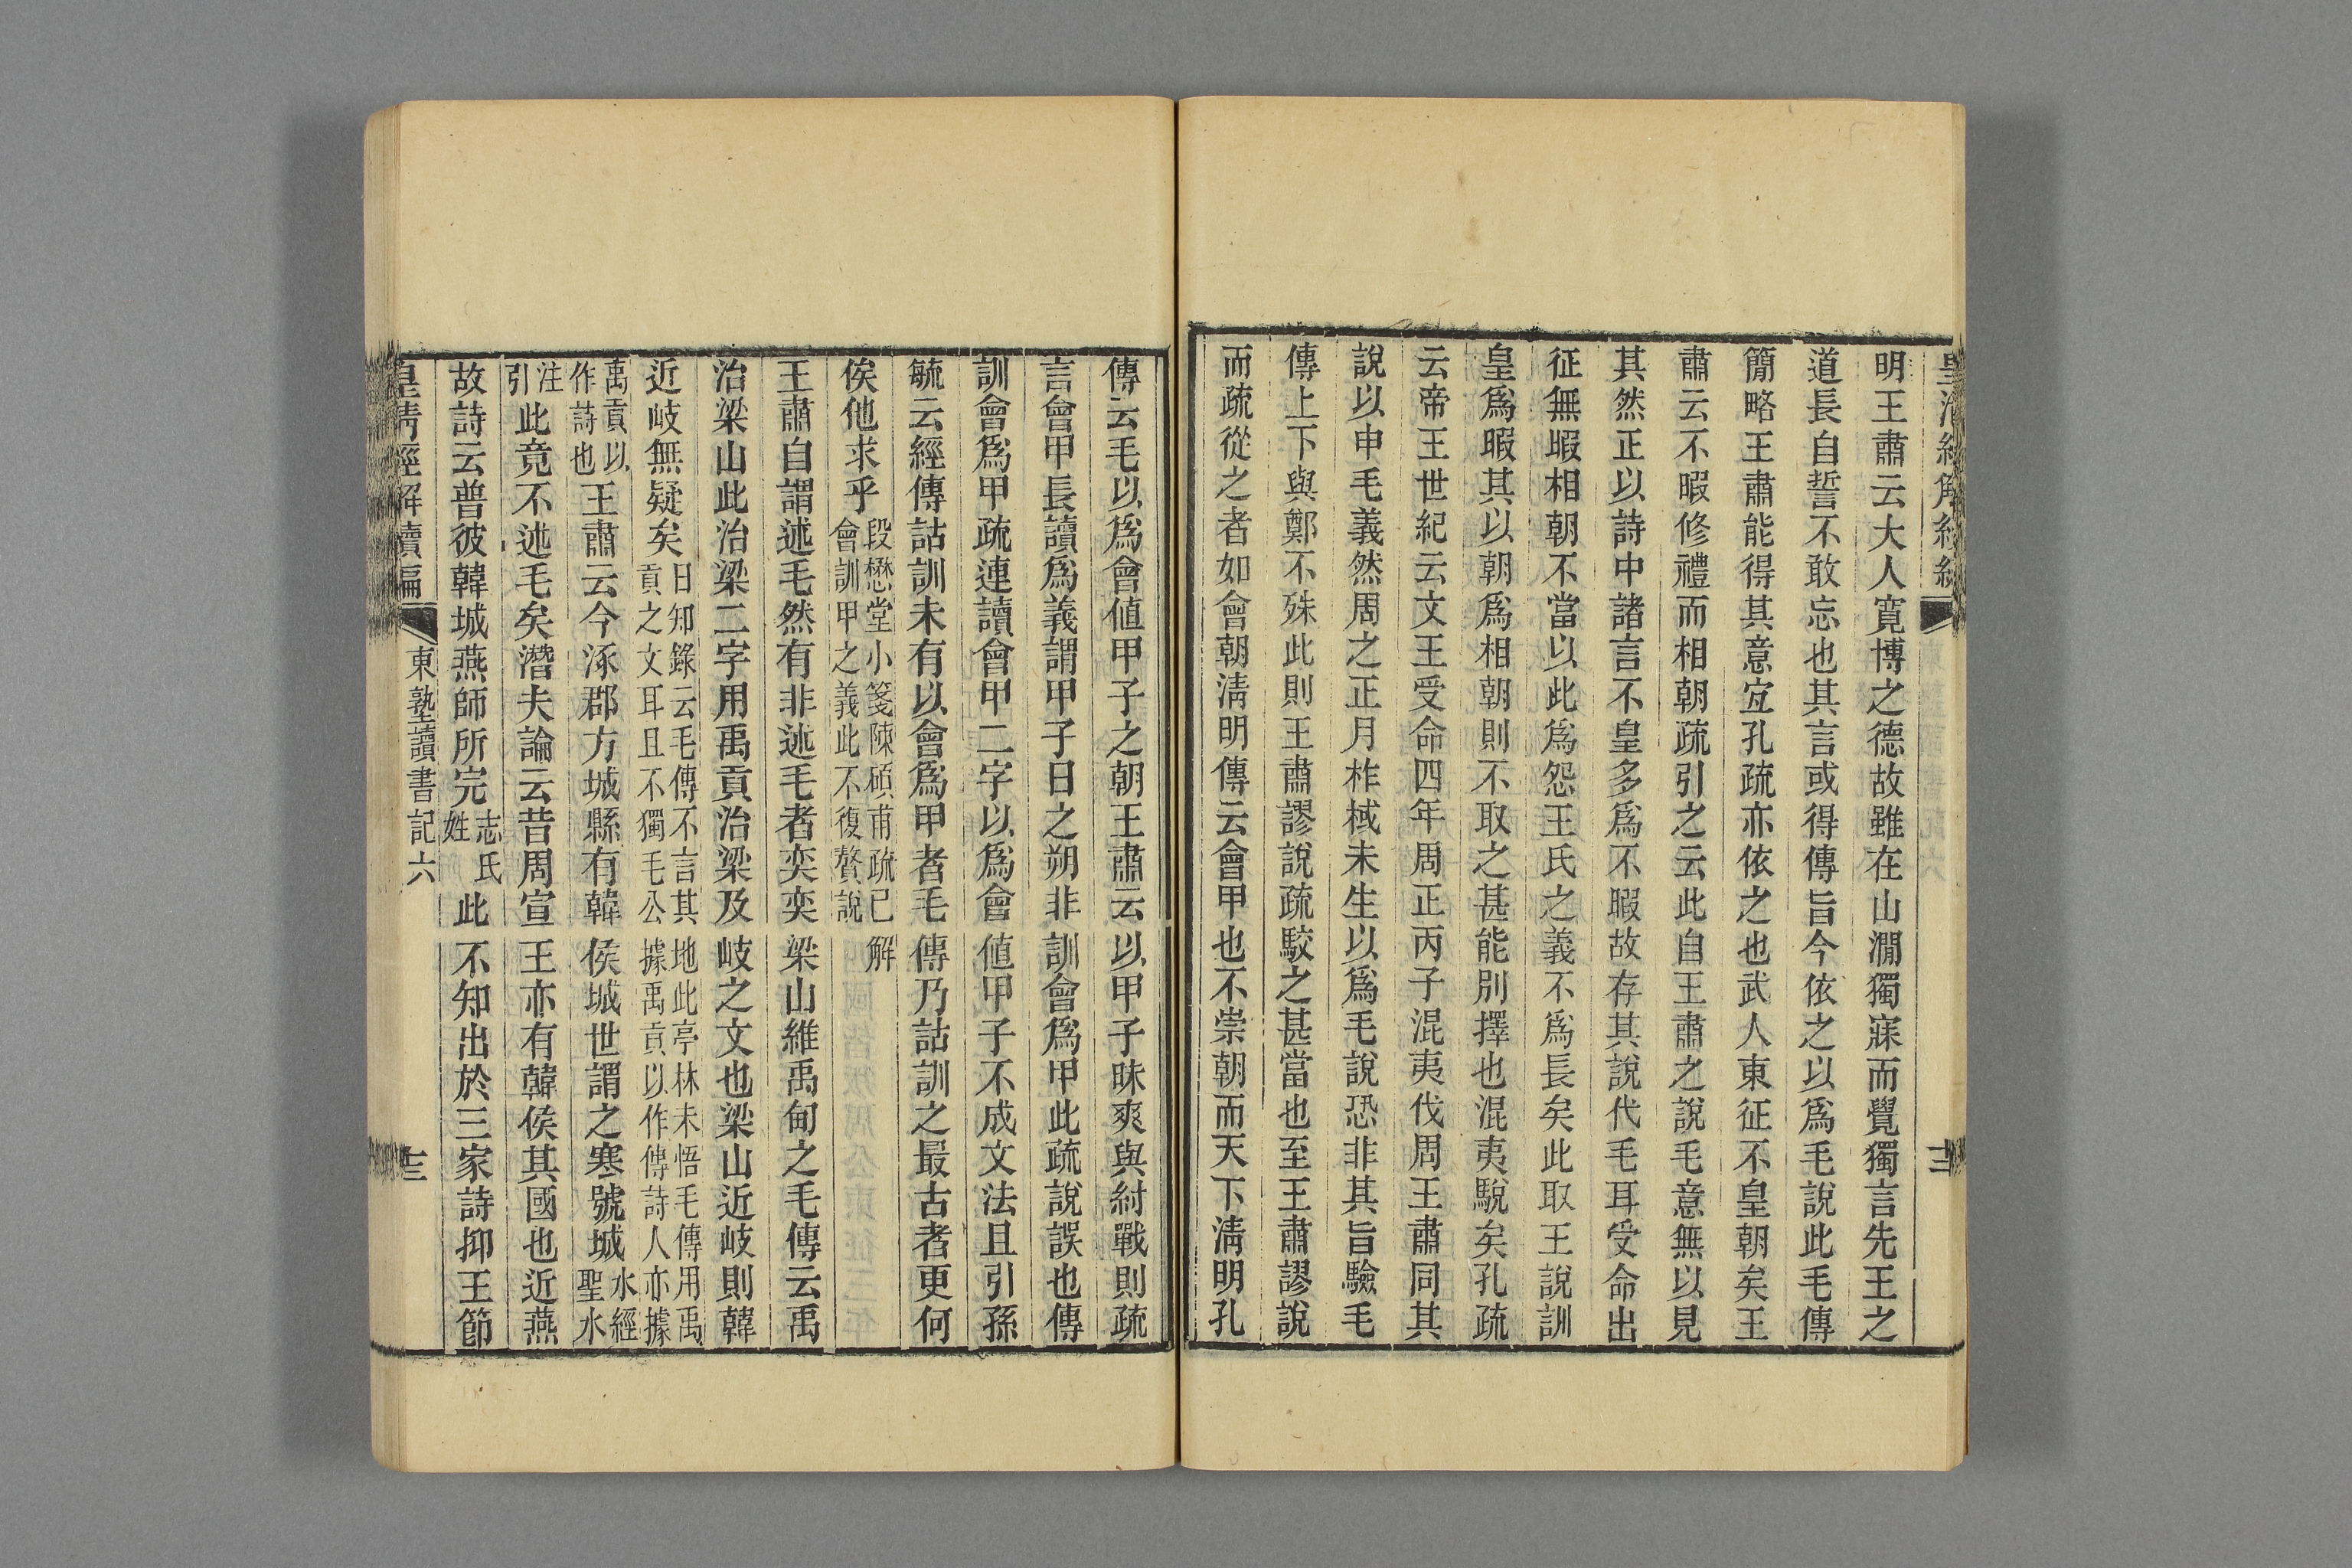 明王肅云大人寬博之德故雖在山澗獨寐而覺獨言先王之
道長自誓不敢忘也其言或得傳旨今依之以爲毛說此毛傳
簡略王肅能得其意宜孔疏亦依之也武人東征不皇朝矣王
肅云不暇修禮而相朝疏引之云此自王肅之說毛意無以見
其然正以詩中諸言不皇多爲不暇故存其說代毛耳受命出
征無暇相朝不當以此爲怨王氏之義不爲長矣此取王說訓
皇爲暇其以朝爲相朝則不取之甚能別擇也混夷駾矣孔疏
云帝王世紀云文王受命四年周正丙子混夷伐周王肅同其
說以申毛義然周之正月柞棫未生以爲毛說恐非其旨驗毛
傳上下與鄭不殊此則王肅謬說疏駮之甚當也至王肅謬說
而疏從之者如會朝淸明傳云會甲也不崇朝而天下淸明孔
傳云毛以爲會値甲子之朝王肅云以甲子昧爽與紂戰則疏
言會甲長讀爲義謂甲子日之朔非訓會爲甲此疏說誤也傳
訓會爲甲疏連讀會甲二字以爲會値甲子不成文法且引孫
毓云經傳詁訓未有以會爲甲者毛傳乃詁訓之最古者更何
俟他求乎段懋堂小箋陳碩甫疏已解
會訓甲之義此不復贅說
王肅自謂述毛然有非述毛者奕奕梁山維禹甸之毛傳云禹
治梁山此治梁二字用禹貢治梁及岐之文也梁山近岐則韓
近岐無疑矣日知錄云毛傳不言其地此亭林未悟毛傳用禹
貢之文耳且不獨毛公據禹貢以作傳詩人亦據
禹貢以
作詩也王肅云今涿郡方城縣有韓侯城世謂之寒號城水經
聖水
注
引此竟不述毛矣潛夫論云昔周宣王亦有韓侯其國也近燕
故詩云普彼韓城燕師所完志氏
姓此不知出於三家詩抑王節
皇淸經解續編 東塾讀書記六 十三